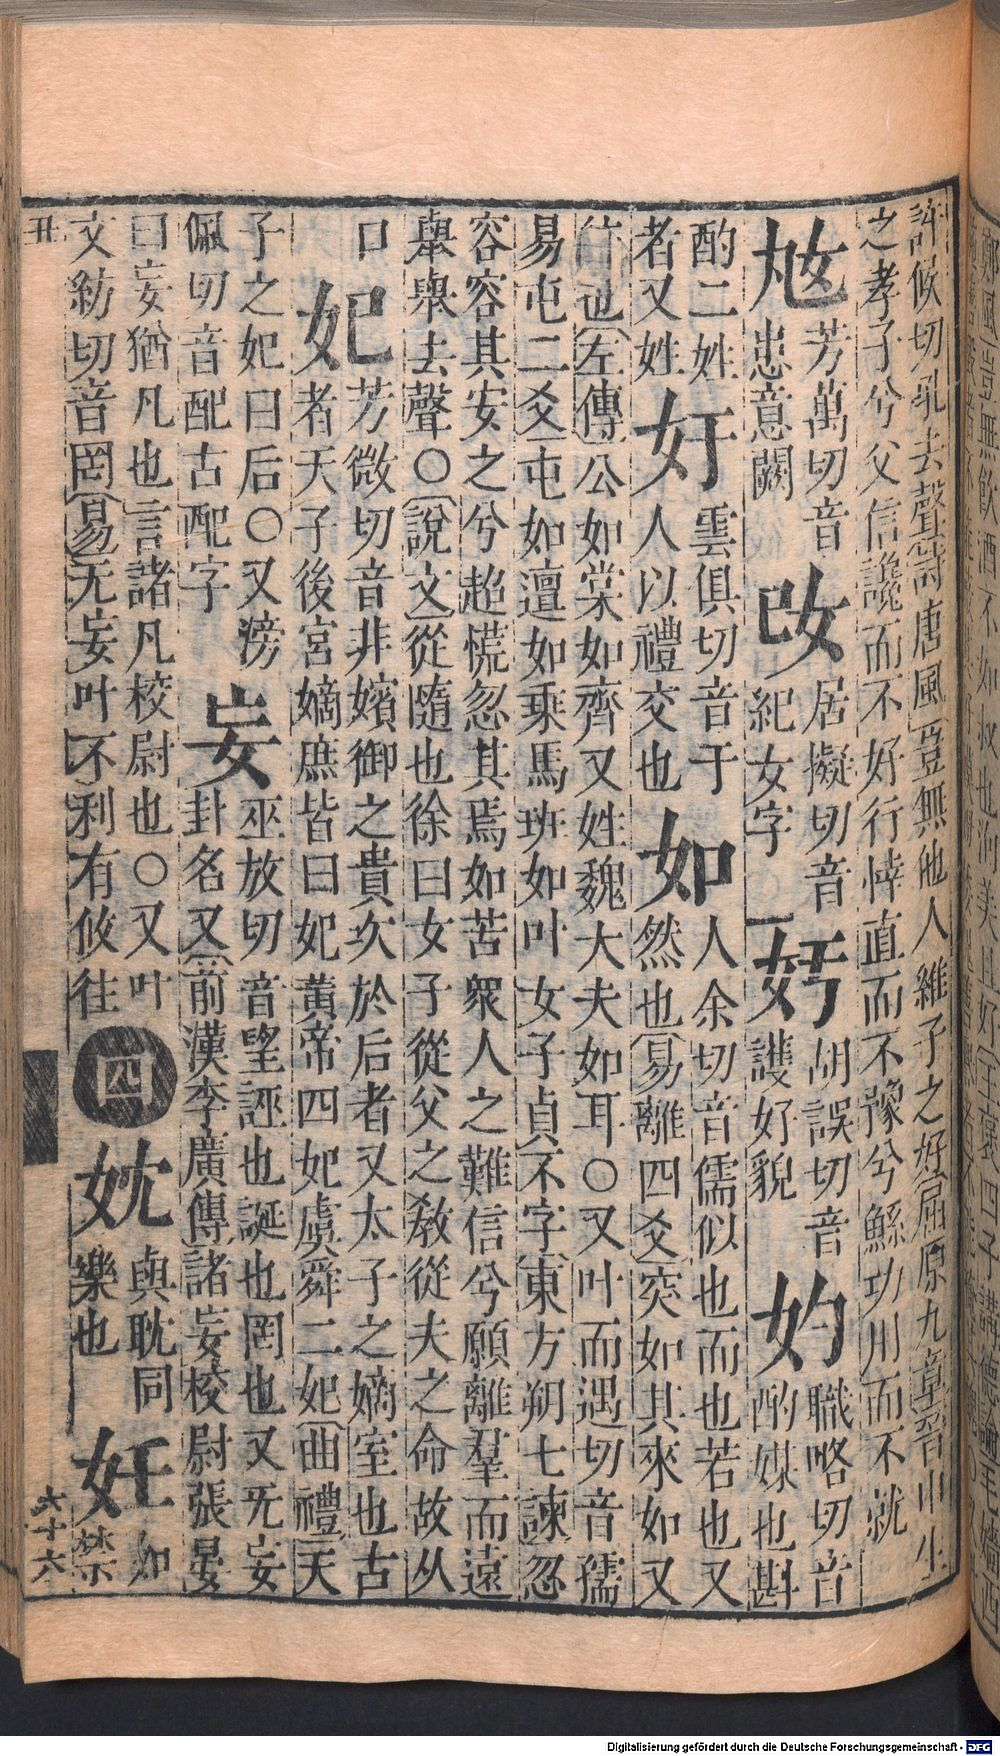 許候切乳去聲詩唐風豈無他人維子之好屈原九章晉申生
之孝子兮父信讒而不好行婞直而不豫兮鯀功用而不就
奿芳萬切音忿意闕 改居擬切音紀女字 㚥胡誤切音護好貌 妁職略切音酌媒也斟
酌二姓者又姓 奵雲俱切音于人以禮交也 如人余切音儒似也而也若也又然也易離四爻突如其來如又
往也左傳公如棠如齊又姓魏大夫如耳〇又叶而遇切音孺
易屯二爻屯如邅如乘馬班如叶女子貞不字東方朔七諫忽
容容其安之兮超慌忽其焉如苦眾人之難信兮願離羣而遠
舉舉去聲〇說文從隨也徐曰女子從父之敎從夫之命故从
口 妃芳微切音非嬪御之貴次於后者又太子之嫡室也古者天子後宮嫡庶皆曰妃黃帝四妃虞舜二妃曲禮天
子之妃曰后〇又滂佩切音配古配字 妄巫放切音望誣也誕也罔也又无妄卦名又前漢李廣傳諸妄校尉張晏
曰妄猶凡也言諸凡校尉也〇又叶文紡切音罔易无妄叶不利有攸往 四 妉與耽同樂也 妊如禁
丑
六十六
Digitalisierung gefördert durch die Deutsche Forschungsgemeinschaft - DFG